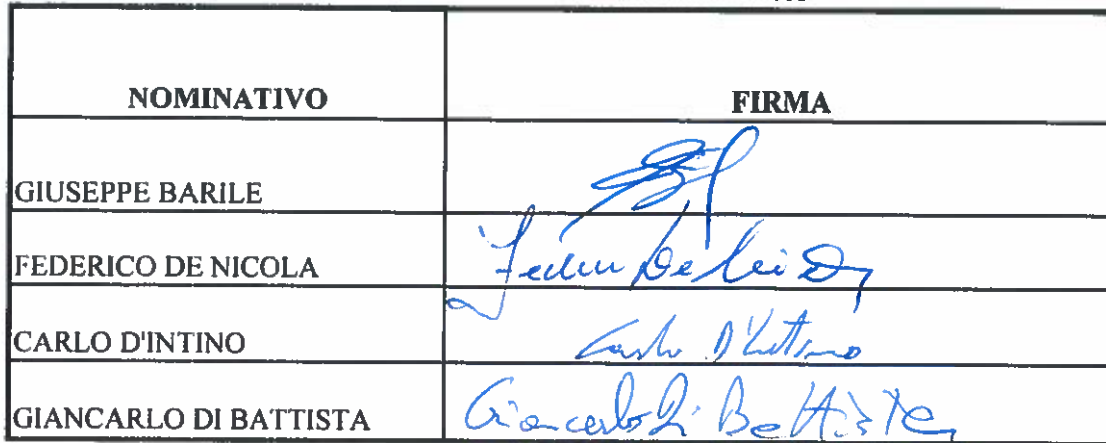 NOMINATIVO FIRMA
GIUSEPPE BARILE
FEDERICO DE NICOLA
CARLO D'INTINO Carlo D'Intino
GIANCARLO DI BATTISTA Giancarlo Di Battista